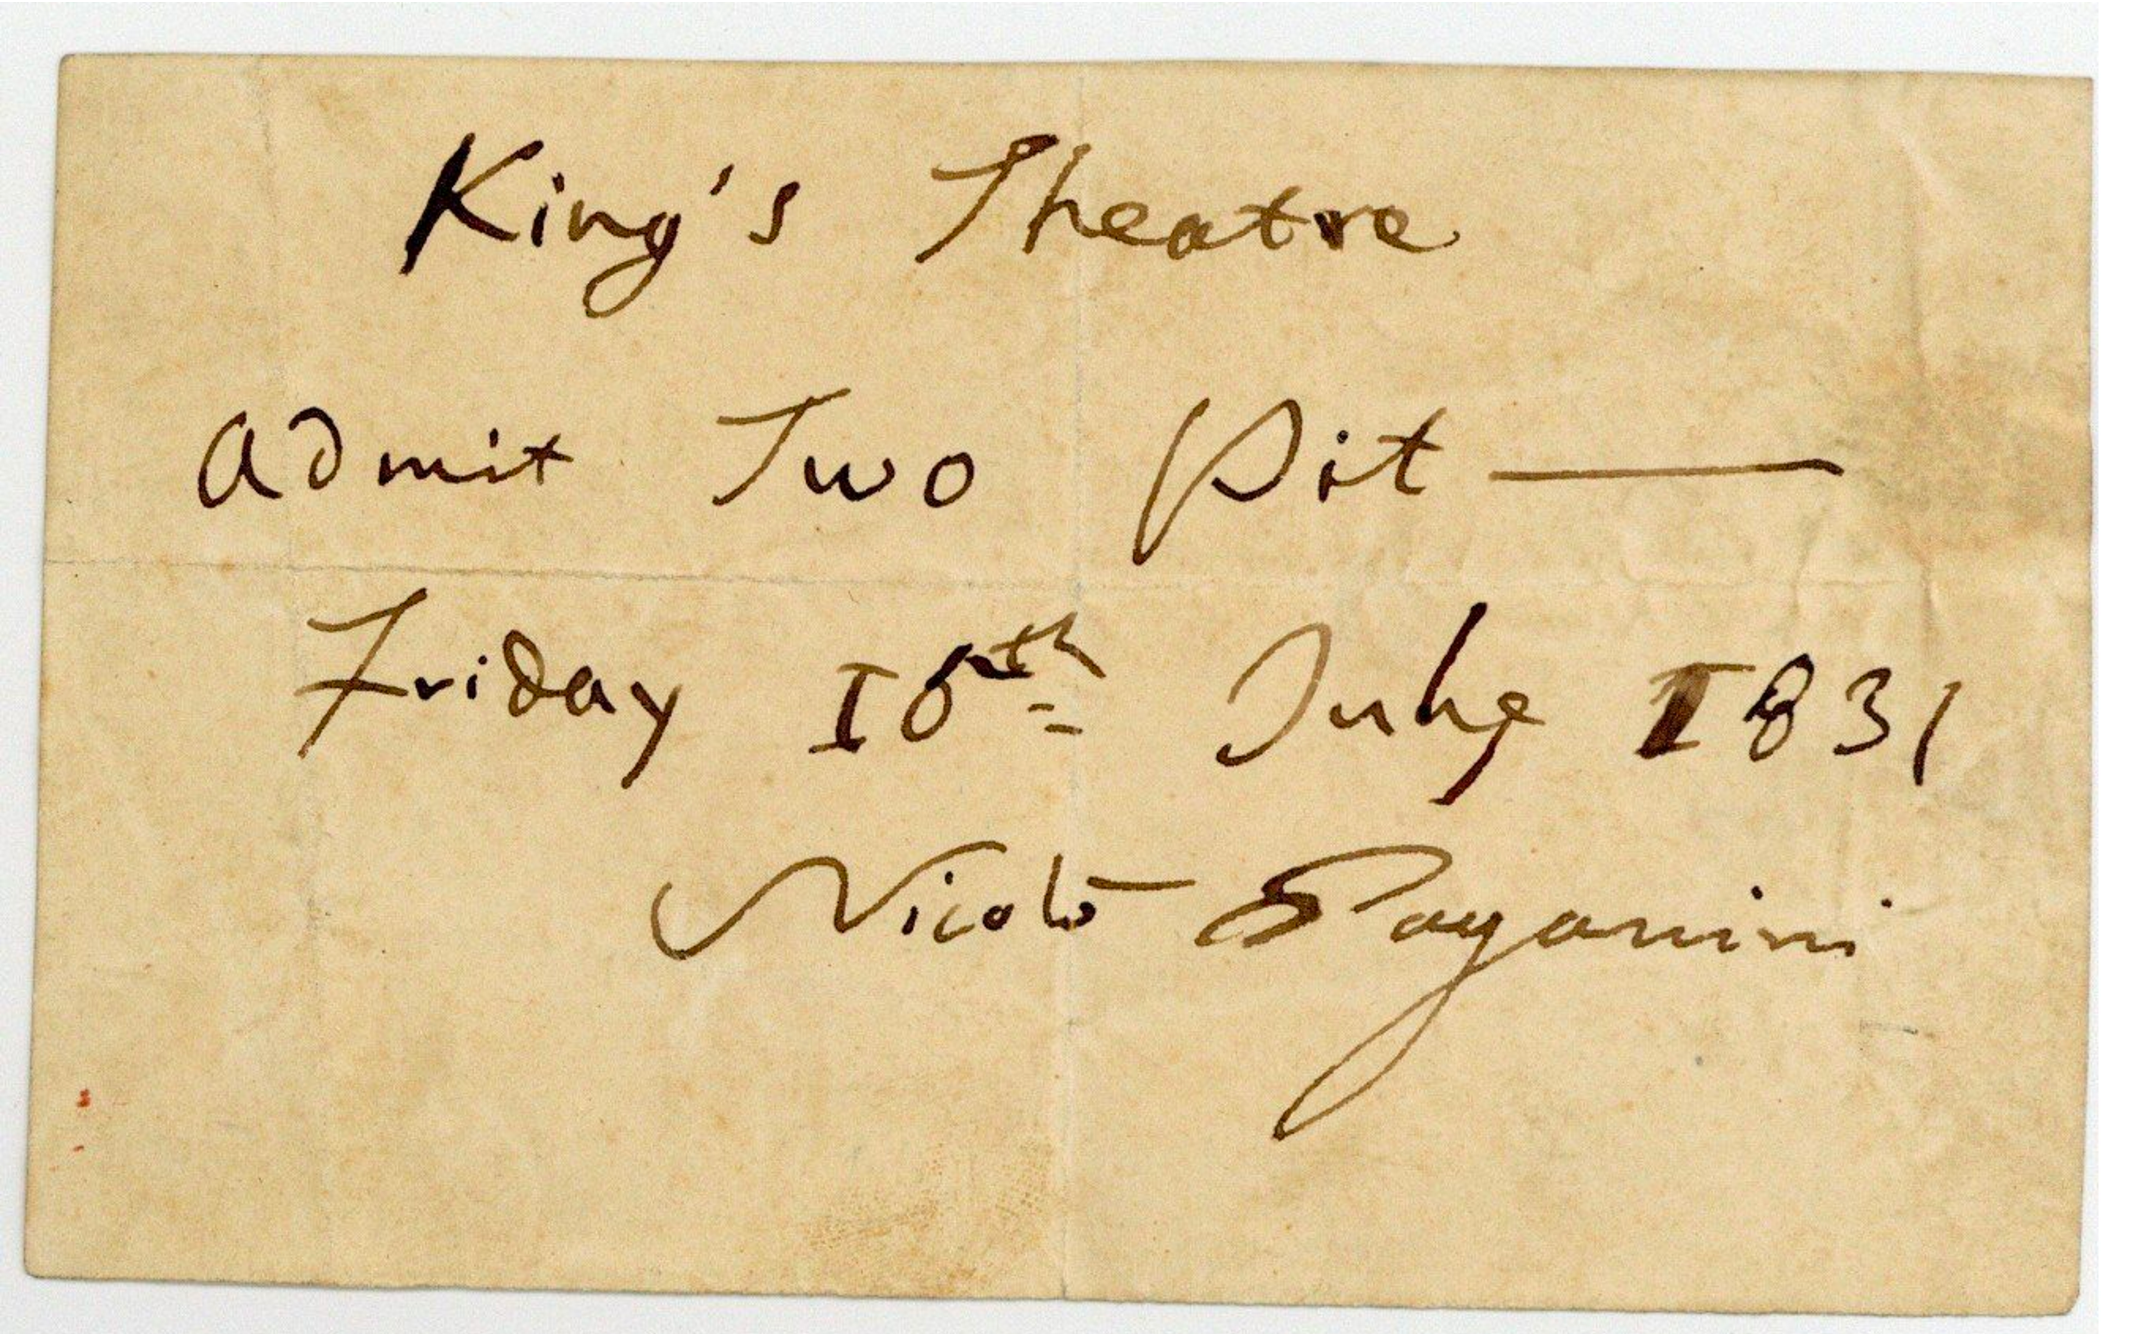 King's Theatre
Admit Two Pit —
Friday 15th July 1831
Nicolò Paganini